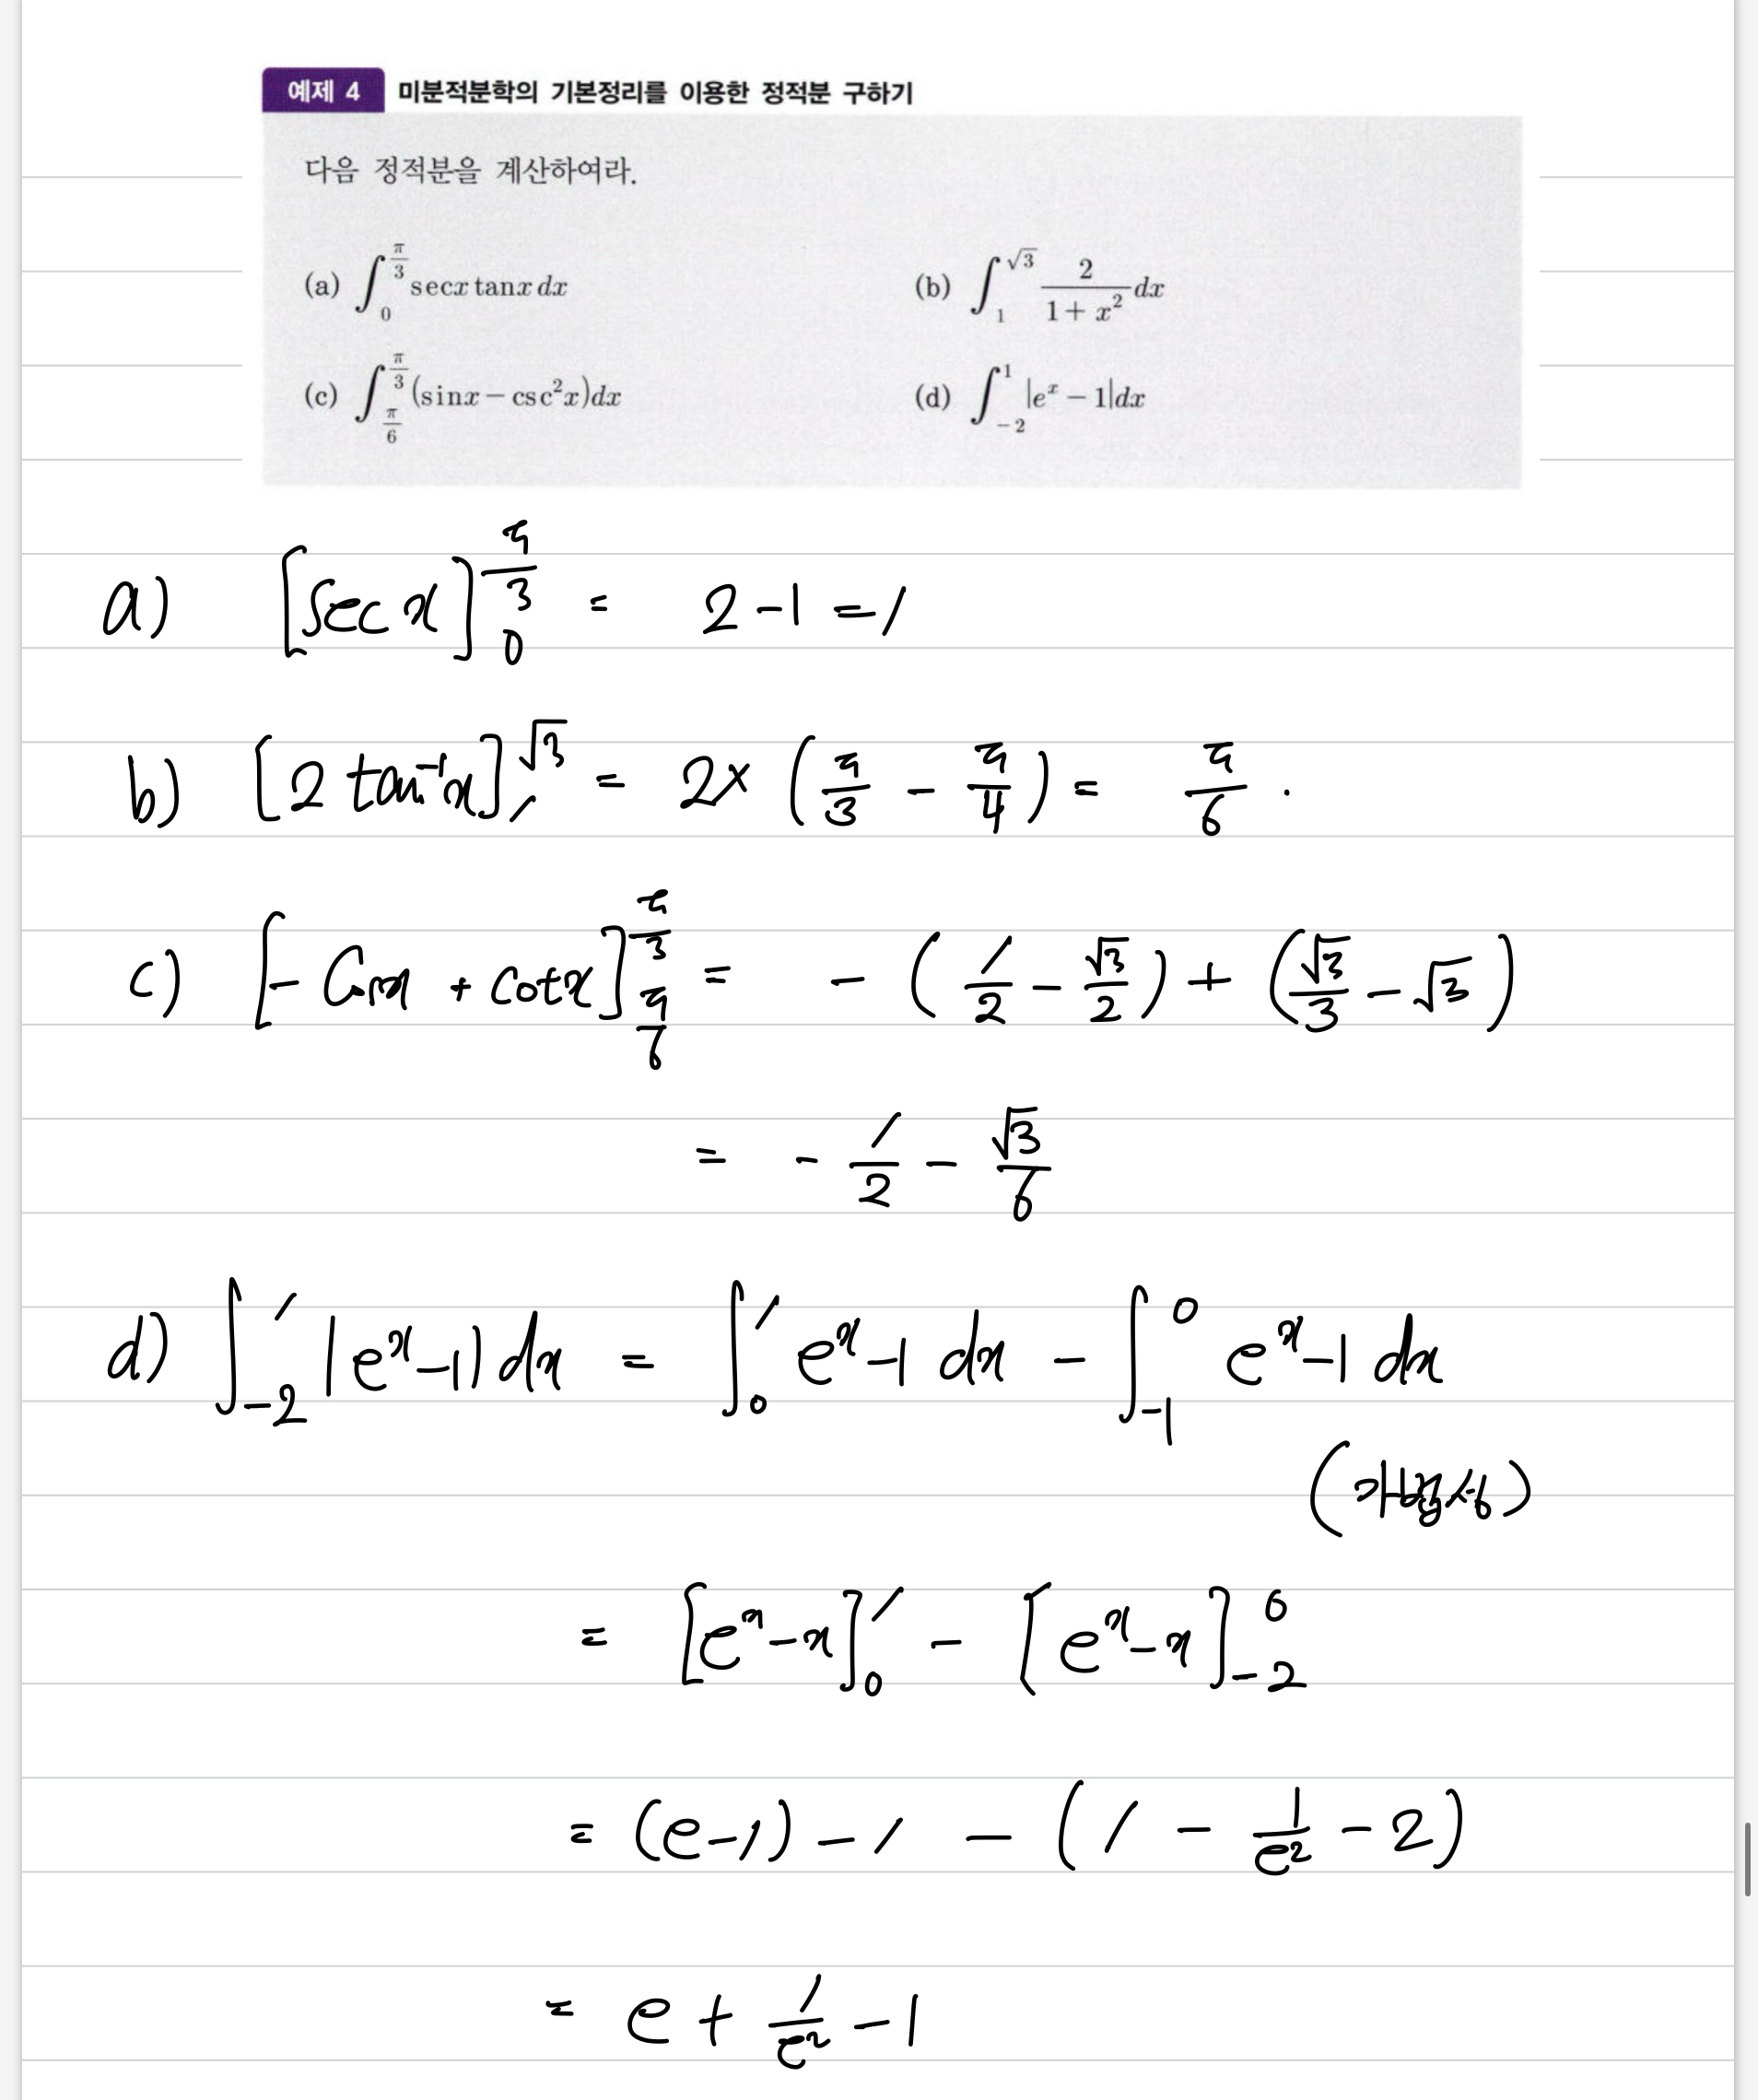 예제 4 미분적분학의 기본정리를 이용한 정적분 구하기
다음 정적분을 계산하여라.
(a) ∫_0^{π/3} secx tanx dx (b) ∫_1^{√3} 2/(1+x²) dx
(c) ∫_{π/6}^{π/3} (sinx − csc²x)dx (d) ∫_{−2}^1 |e^x − 1|dx
a) [sec x]_0^{π/3} = 2-1 = 1
b) [2 tan⁻¹x]_1^{√3} = 2× (π/3 - π/4) = π/6 .
c) [- cosx + cotx]_{π/6}^{π/3} = - (1/2 - √3/2) + (√3/3 - √3)
= - 1/2 - √3/6
d) ∫_{-2}^1 |e^x-1| dx = ∫_0^1 e^x-1 dx - ∫_{-1}^0 e^x-1 dx
= [e^x-x]_0^1 - [e^x-x]_{-2}^0
= (e-1) - 1 - (1 - 1/e² - 2)
= e + 1/e² - 1